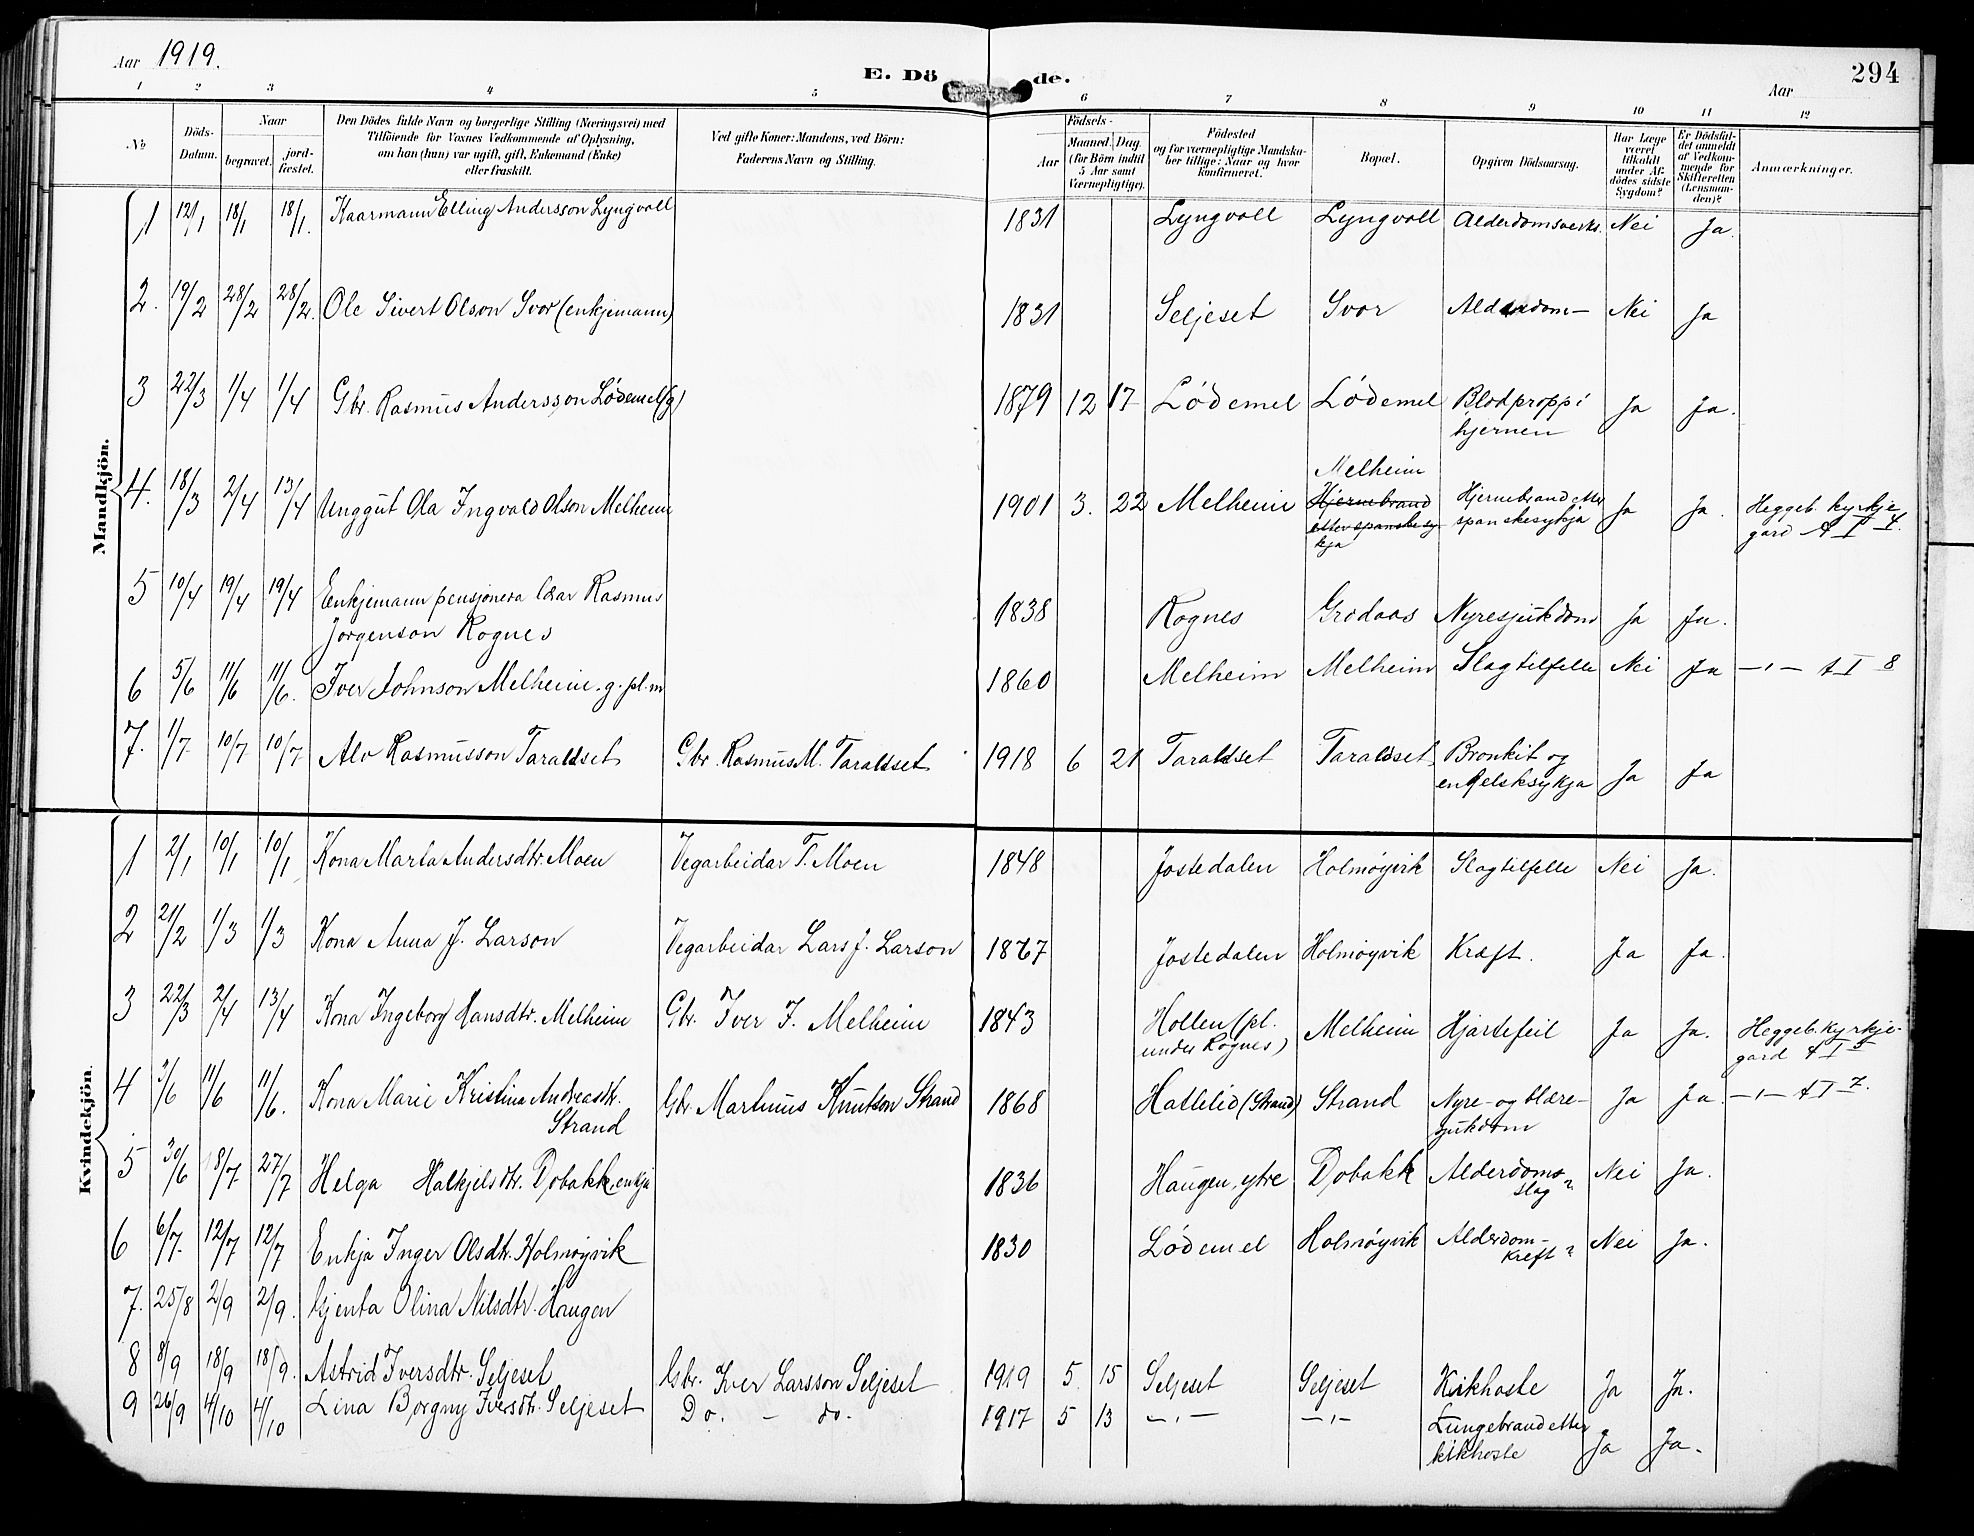 Aar 1919.
E. Dö de.
Aar
294
1 2 3 4 5 6 7 8 9 10 11 12
No
Döds-Datum.
Naar
begravet.
jord-fæstet.
Den Dödes fulde Navn og borgerlige Stilling (Næringsvei) med
Tilföiende for Voxnes Vedkommende af Oplysning,
om han (hun) var ugift, gift, Enkemand (Enke)
eller fraskilt.
Ved gifte Koner: Mandens, ved Börn:
Faderens Navn og Stilling.
Födsels-
Aar
Maaned. Dag
(for Börn indtil
5 Aar samt
Værnepligtige).
Födested
og for værnepligtige Mandska-
ber tillige: Naar og hvor
konfirmeret.
Bopæl.
Opgiven Dödsaarsag.
Har Læge
været
tilkaldt
under Af-
dödes sidste
Sygdom?
Er Dödsfal-
det anmeldt
af Vedkom-
mende for
Skifteretten
(Lensman-
den)?
Anmærkninger.
Mandkjön.
1 12/1 18/1 18/1. Kaarmann Elling Andersson Lyngvoll 1831 Lyngvoll Lyngvoll Alderdomsverks. Nei Ja.
2. 19/2 28/2 28/2. Ole Sivert Olson Svor (enkjemann) 1831 Seljeset Svor Alderdom— Nei Ja
3 22/3 1/4 1/4 Gbr. Rasmus Andersson Lødemel (g) 1879 12 17 Lødemel Lødemel Blodpropp i Ja Ja.
hjernen
Melheim
4. 18/3 2/4 13/4 Unggut Ola Ingvald Olson Melheim 1901 3. 22 Melheim Hjernebrand Hjernebrand etter Ja Ja. Heggeb. kyrkje
etter spanskesy- spanskesykja gard A I 4.
kja
5 10/4 19/4 19/4 Enkjemann pensjonera lærar Rasmus 1838 Rognes Grodaas Nyresjukdom Ja Ja.
Jørgenson Rognes
6 5/6 11/6 11/6. Iver Johnson Melheim. g. pl.m 1860 Melheim Melheim Slagtilfelle Nei Ja —"— A I 8
7. 1/7 10/7 10/7 Alv Rasmusson Taraldset Gbr. Rasmus M. Taraldset 1918 6 21 Taraldset Taraldset Bronkit og Ja Ja
engelsksykja
Kvindekjön.
1 2/1 10/1 10/1 Kona Marta Andersdtr. Moen Vegarbeidar T. Moen 1848 Jostedalen Holmøyvik Slagtilfelle Nei Ja.
2 21/2 1/3 1/3 Kona Anna J. Larson Vegarbeidar Lars J. Larson 1867 Jostedalen Holmøyvik Kræft. Ja Ja.
3 22/3 2/4 13/4 Kona Ingeborg Hansdtr. Melheim Gbr. Iver J. Melheim 1843 Hollen (pl. Melheim Hjartefeil Ja Ja. Heggeb. kyrkje-
under Rognes) gard A I 5
4 3/6 11/6 11/6. Kona Marie Kristina Andreasdtr. Gbr. Martinus Knutson Strand 1868 Hatlelid (Strand) Strand Nyre- og blære- Ja Ja. —"— A I 7.
Strand sjukdom
5 30/6 18/7 27/7 Helga Halkjelsdtr. Dobakk, enkja 1836 Haugen, ytre Dobakk Alderdoms Nei Ja.
slag ?
6 6/7. 12/7 12/7 Enkja Inger Olsdtr. Holmøyvik 1830 Lødemel Holmøyvik Alderdom— Nei Ja.
kreft ?
7. 25/8 2/9 2/9. Gjenta Olina Nilsdtr. Haugen
8 8/9 18/9 18/9. Astrid Iversdtr. Seljeset Gbr. Iver Larsson Seljeset 1919 5. 15 Seljeset Seljeset Kikhoste Ja Ja.
9 26/9 4/10 4/10 Lina Borgny Iversdtr. Seljeset Do. — do. 1917 5 13 —"— —"— Lungebrand etter Ja Ja.
kikhoste